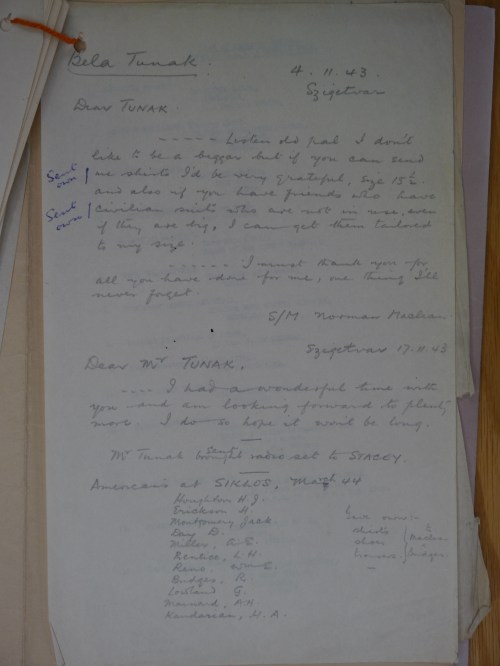 Bela Tunak.
4.11.43.
Szigetvar
Dear TUNAK.
----- Listen old pal I don't
like to be a beggar but if you can send
Sent own
me shirts I'd be very grateful, size 15½
and also if you have friends who have
Sent own
civilian suits who are not in use, even
if they are big, I can get them tailored
to my size.
------ I must thank you for
all you have done for me, one thing I'll
never forget.
S/M. Norman Maclean
Szigetvar 17.11.43
Dear Mr TUNAK,
---- I had a wonderful time with
you and am looking forward to plenty
more. I do so hope it won't be long.
Mr Tunak sent radio set to STACEY
Americans at SIKLOS, March 44
Houghdon H.J.
Erickson H.
Montgomery Jack
Day D.
Miller, C.E.
Rentice, L.H.
Rens. Wm E.
Budges, R.
Lowland G.
Maynard, A.H.
Kendarian, H.A.
Gave own:-
shirts
shoes
trousers
to
Maclean
Budges.